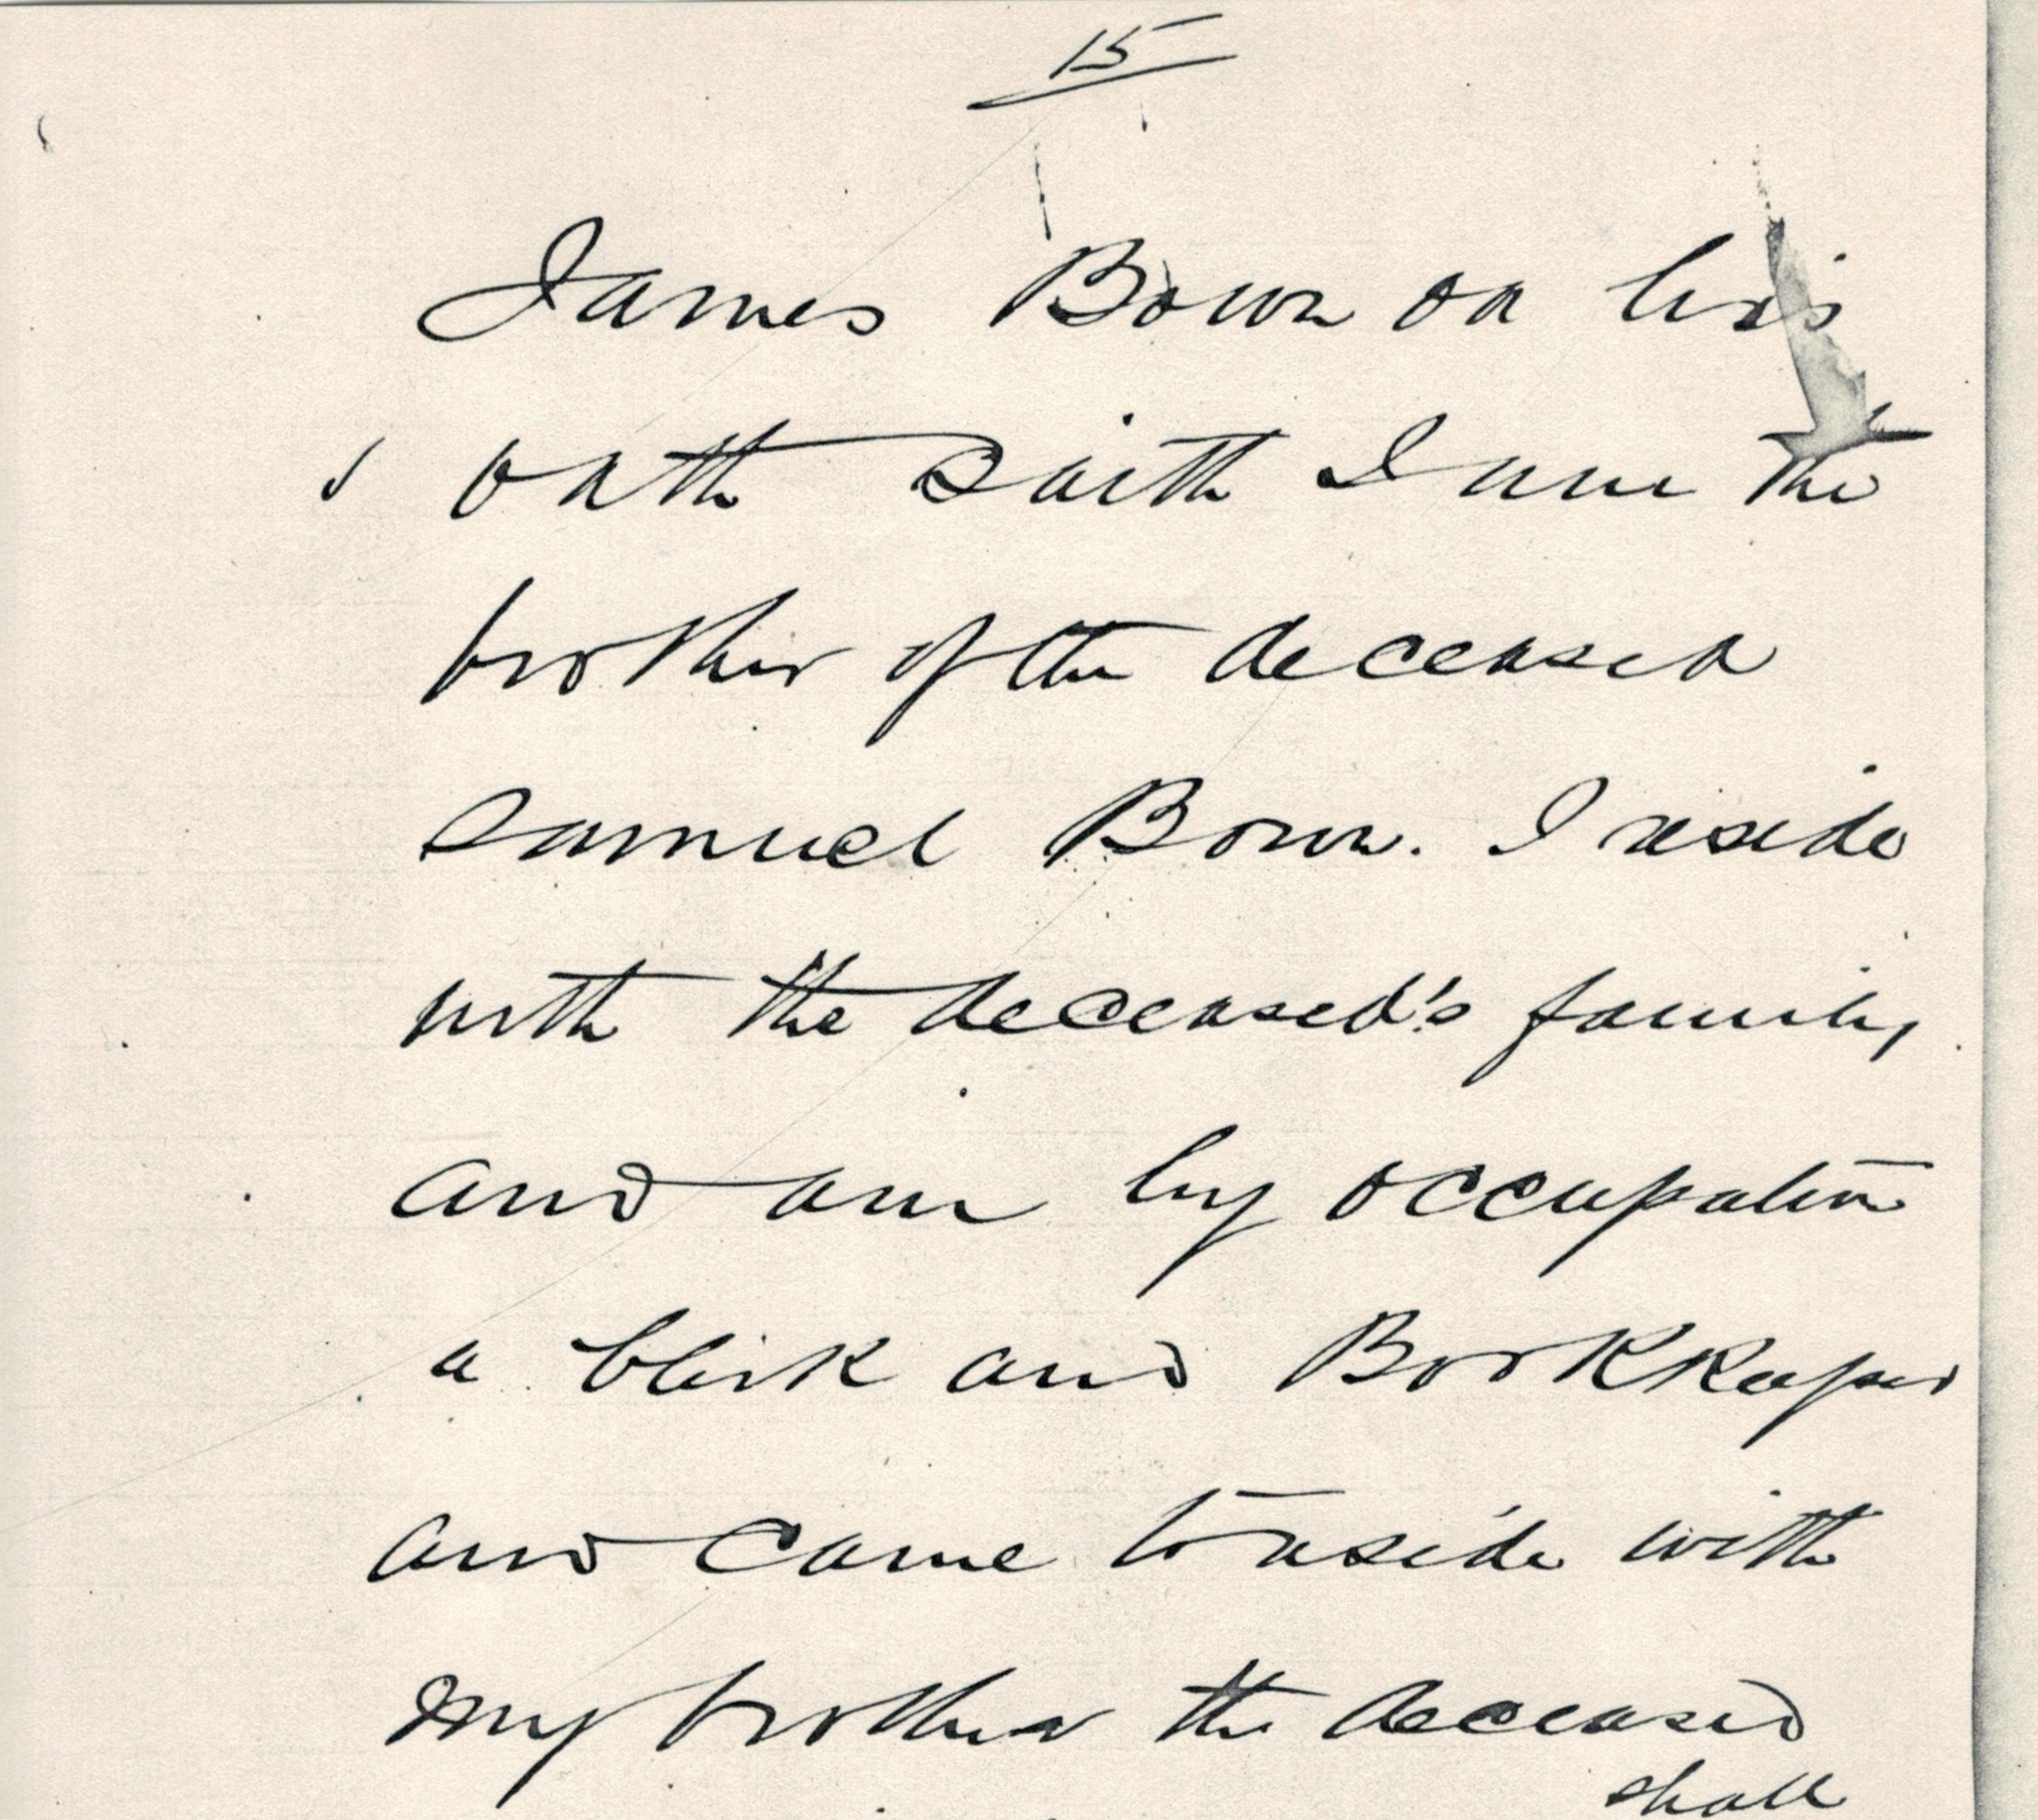 15
James Bown on his
oath saith I am the
brother of the deceased
Samuel Bown. I reside
with the deceased's family
and am by occupation
a Clerk and Bookkeeper
and came to reside with
my brother the deceased
shall